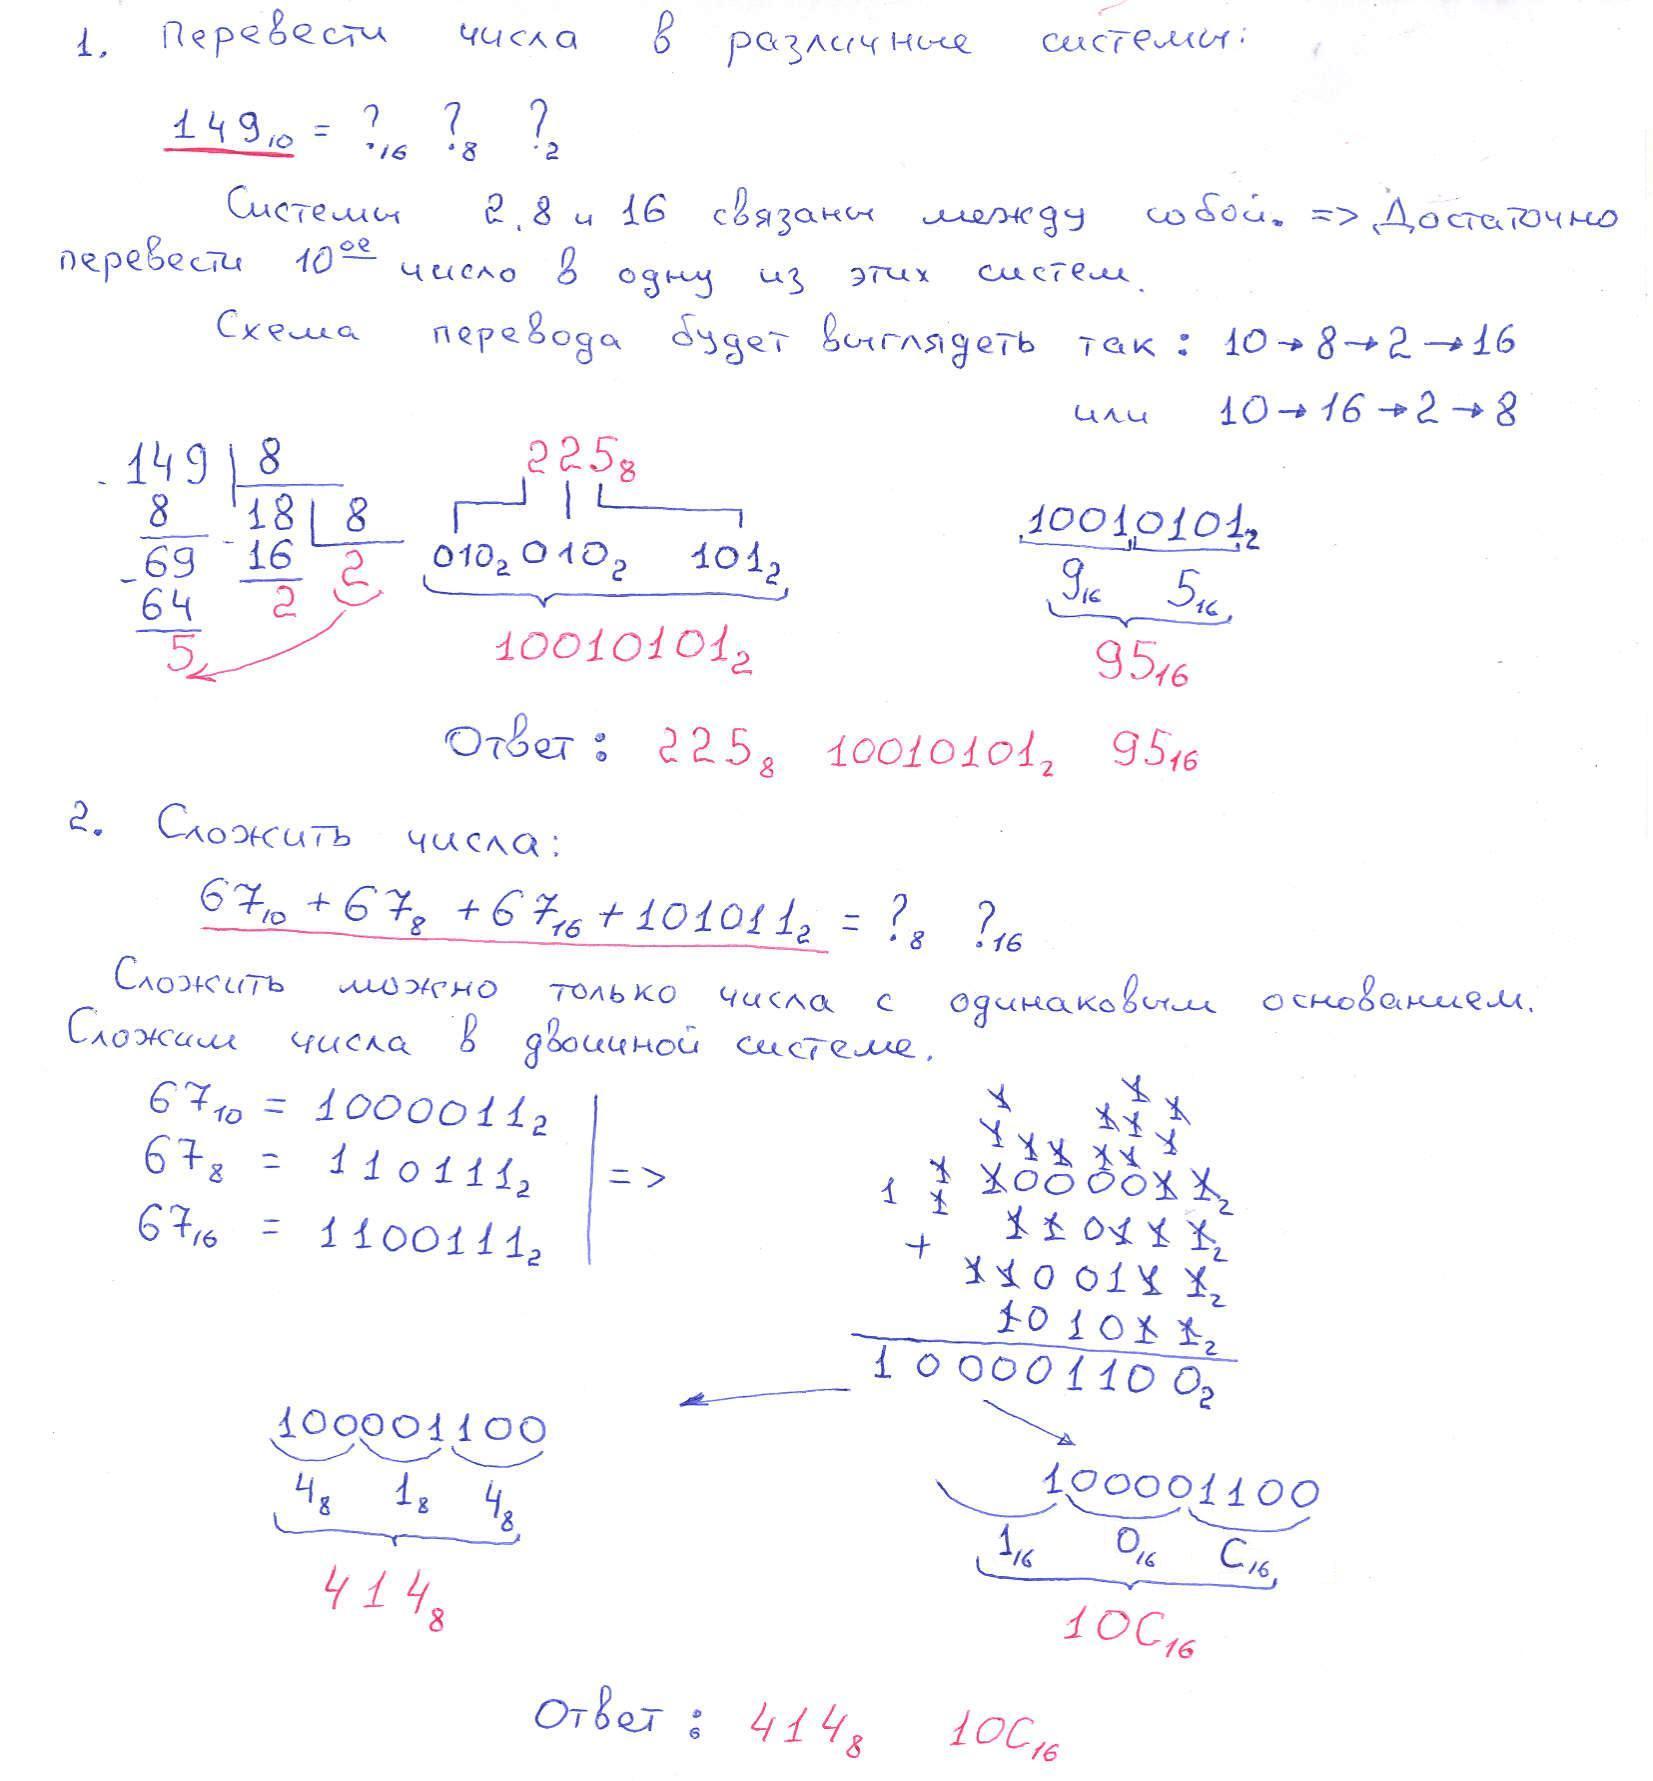 1. Перевести числа в различные системы:
149₁₀ = ?₁₆ ?₈ ?₂
Системы 2, 8 и 16 связаны между собой. => Достаточно
перевести 10ое число в одну из этих систем.
Схема перевода будет выглядеть так: 10→8→2→16
или 10→16→2→8
149 | 8
8 18 | 8
69 16 2
64 2
5
225₈
010₂ 010₂ 101₂
10010101₂
10010101₂
9₁₆ 5₁₆
95₁₆
Ответ: 225₈ 10010101₂ 95₁₆
2. Сложить числа:
67₁₀ + 67₈ + 67₁₆ + 101011₂ = ?₈ ?₁₆
Сложить можно только числа с одинаковым основанием.
Сложим числа в двоичной системе.
67₁₀ = 1000011₂
67₈ = 110111₂ =>
67₁₆ = 1100111₂
1 1
1 1 1 1
1 1 1 1 1 1
1 1 1000011₂
1
110111₂
+
1100111₂
101011₂
100001100₂
100001100
4₈ 1₈ 4₈
414₈
100001100
1₁₆ 0₁₆ C₁₆
10C₁₆
Ответ: 414₈ 10C₁₆